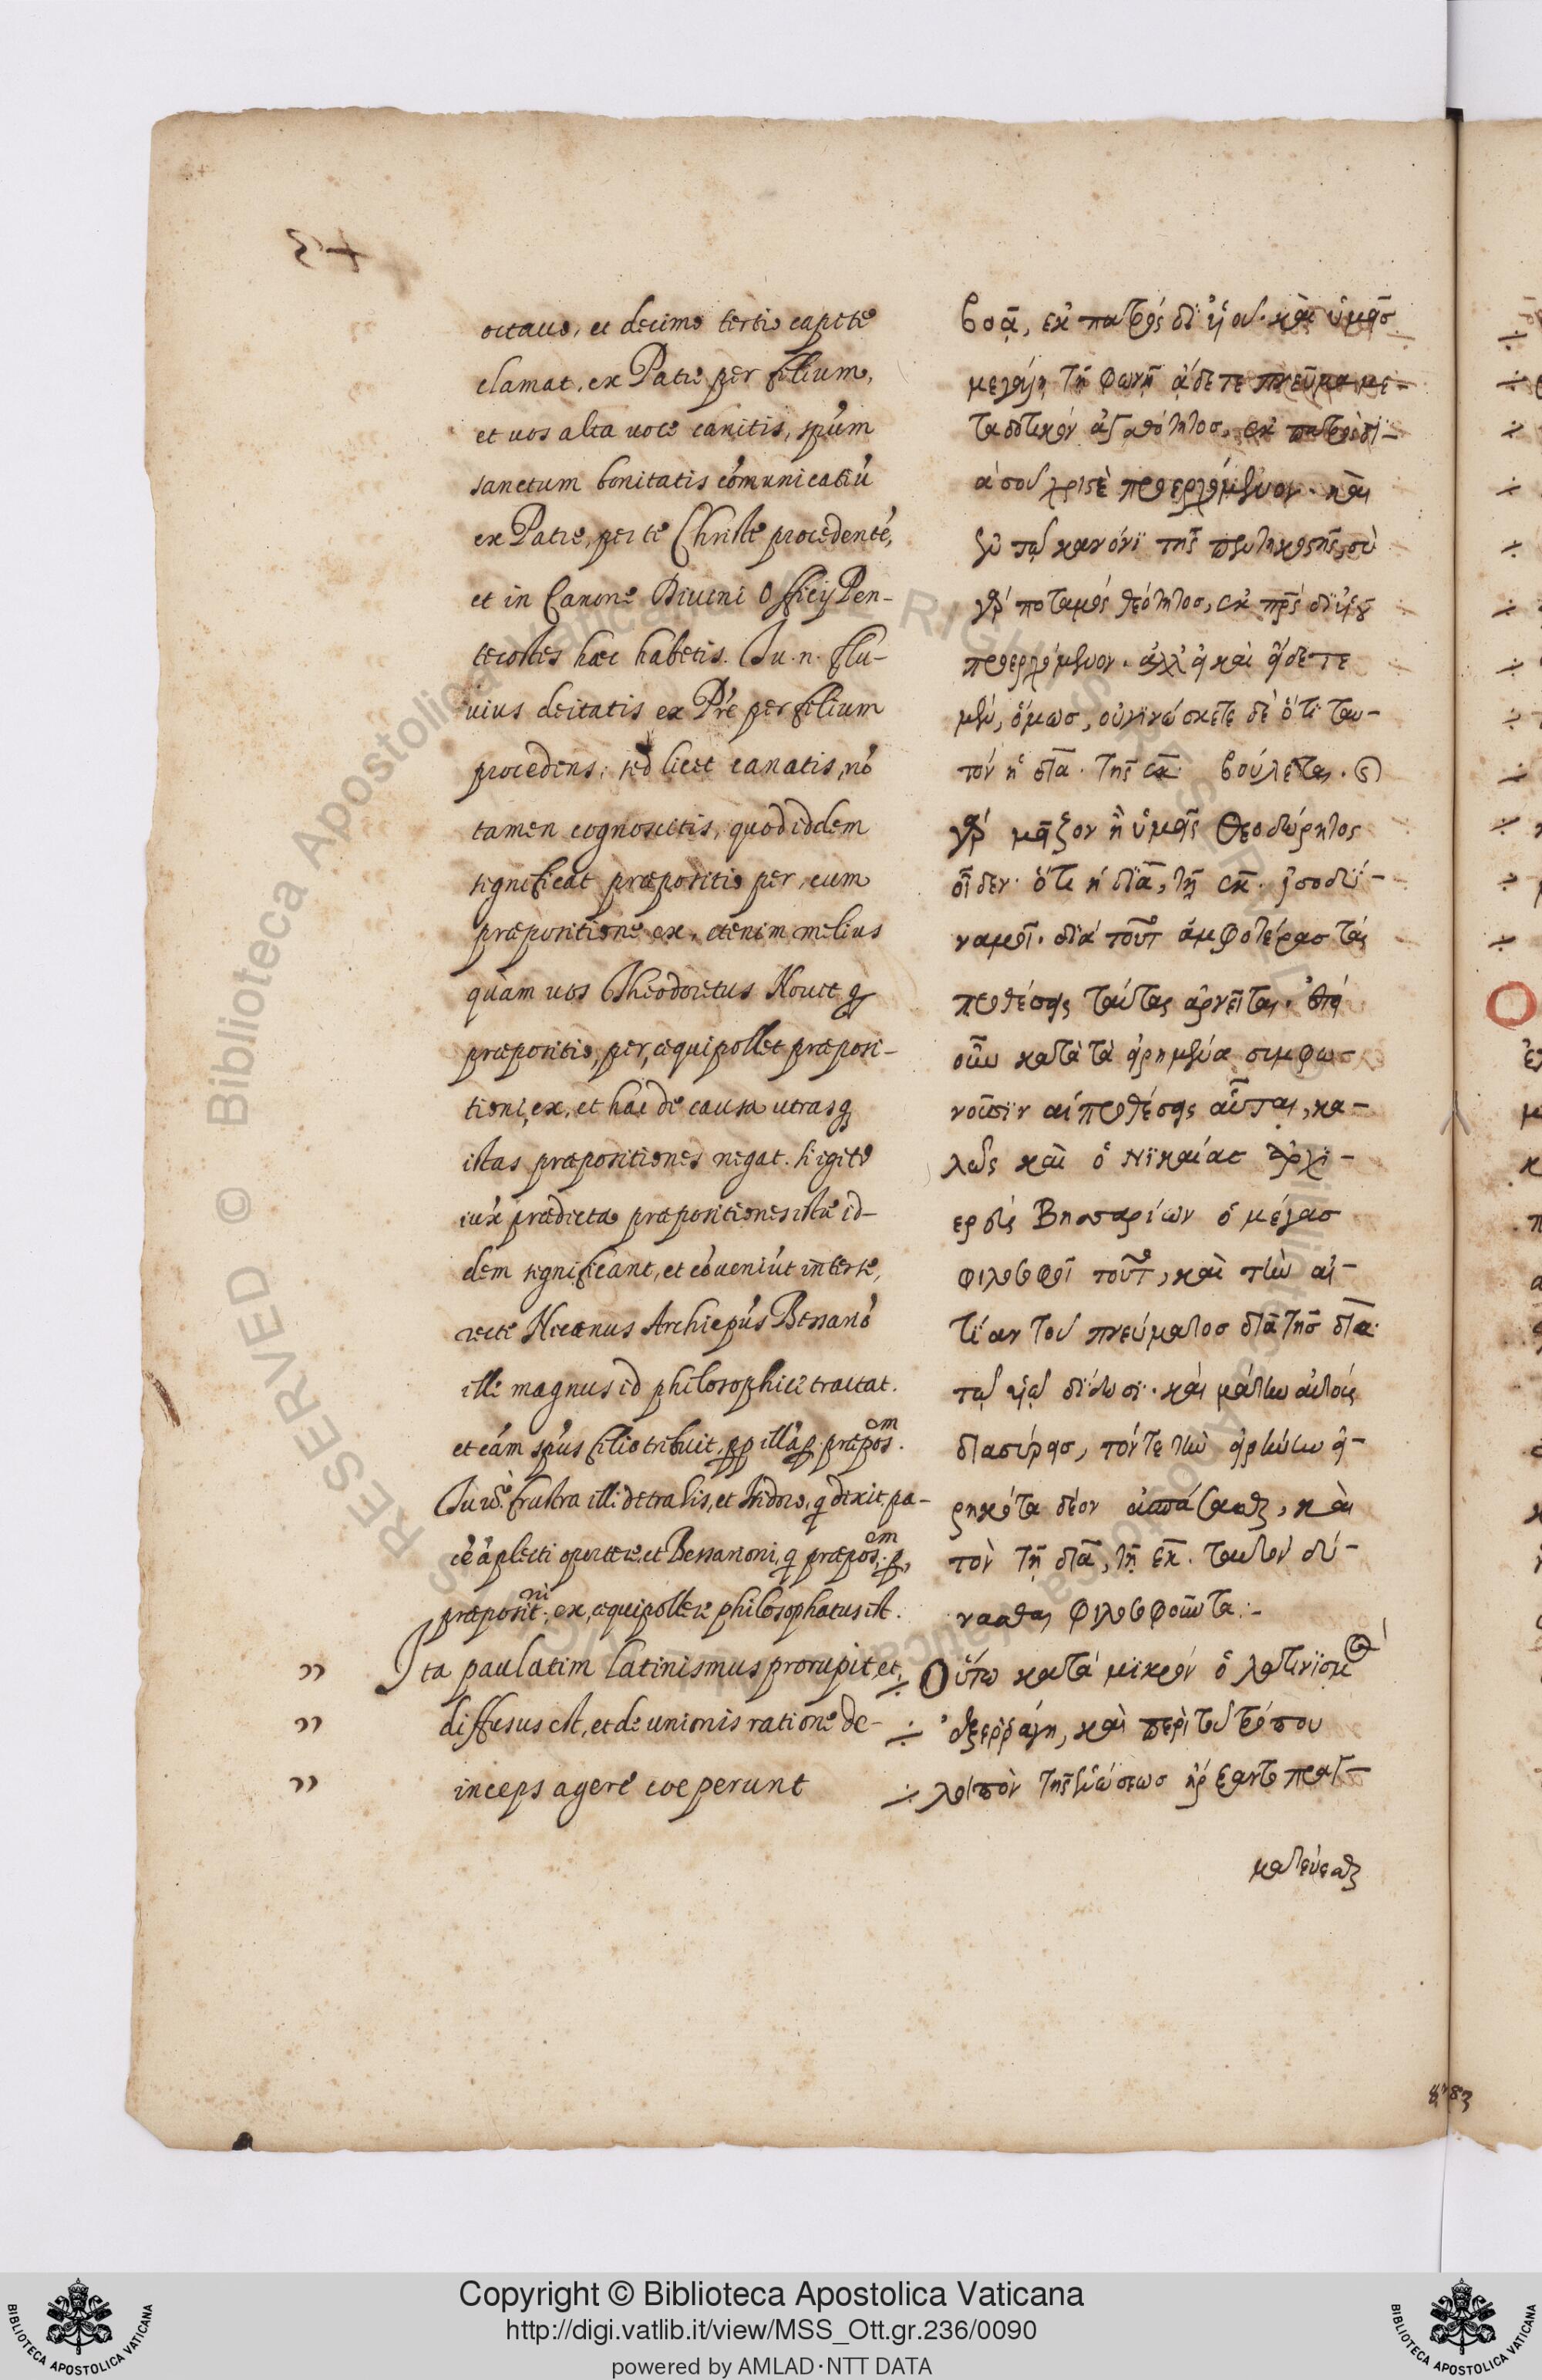 octavo, et decimo tertio capite
clamat, ex Patre per filium,
et vos alta voce canitis, spũm
sanctum bonitatis cõmunicatiũ
ex Patre, per te Christe procedentẽ,
et in Canone Divini Officij Pen-
tecostes hæc habetis. Tu. n. flu-
vius deitatis ex Prẽ per filium
procedens; sed licet canatis, nõ
tamen cognoscitis, quod iddem
significat præpositio per, cum
præpositione ex, etenim melius
quàm vos Theodoretus Novit q
præpositio, per, æquipollet præposi-
tioni, ex, et hac de causa utrasq
istas præpositiones negat. Si igitr
iux prædicta præpositiones istæ id-
dem significant, et cõveniũt inter se,
recte Nicænus Archiepũs Bessariõ
ille magnus id philosophice tractat.
et cãm spũs filio tribuit, pp illã p. præpos. om
Tu vẽ frustra illi detrahis, et Isidoro, q dixit, pa-
cẽ ãplecti oportere, et Bessarioni, q præpos. om p,
præposit. ni ex, æquipollere philosophatus est.
Ita paulatim latinismus prorupit, et,
diffusus est, et de unionis ratione de-
inceps agere cœperunt
βοᾷ, ἐκ πατρός δι' ὑιοῦ. καὶ ὑμᾶσ
μεγάλῃ τῇ φωνῇ ἄδετε πνεῦμα με-
ταδοτικόν ἀγαθότητοσ, ἐκ πατρὸσ δϊ-
ά σοῦ χριστὲ προερχόμενον. καὶ
ἐν τῷ κανόνϊ τῆς πεντηκοστῆς, σὺ
γάρ ποταμός θεότητοσ, ἐκ πρ̃ς δϊ ὑιοῦ
προερχόμενον. ἀλλ' ᾄ καὶ ᾄδετε
μέν, ὅμωσ, οὐ γϊνώσκετε δὲ ὅτϊ ταυ-
τόν ἡ διὰ. τῆς ἐκ. βούλεται. ὁ
γάρ μᾶλλον ἢ ὑμᾶς Θεοδώρητος
οἶδεν. ὅτι ἡ διὰ, τῇ ἐκ. ἰσοδύ-
ναμεῖ. διά τοῦτο ἀμφοτέρασ τάς
προθέσεις ταύτας ἀρνεῖται. ἐπεί
οὖν κατὰ τὰ εἰρημένα σιμφω-
νοῦσϊν αἱ προθέσεις αὗται, κα-
λῶς καὶ ὁ Νϊκαίας ἀρχϊ-
ερεύς Βησσαρίων ὁ μέγασ
φιλοσοφεῖ τοῦτο, καὶ τὴν αἰ-
τΐαν τοῦ πνεύματοσ διὰ τῆσ διὰ.
τῷ ὑιῷ δϊδωσϊ. καὶ μάτην αὐτούς
διασύρεισ, τόν τε τὴν εἰρήνην εἰ-
ρηκότα δέον ἀσπάζεσθαι, καὶ
τὸν τῇ διὰ, τῇ ἐκ. ταυτόν δύ-
νασθαι φιλοσοφοῦντα:-
Οὕτω κατά μϊκρόν ὁ λατινϊσμὸσ
ἐξερράγη, καὶ περὶ τοῦ τρόπου
λοιπὸν τῆς ἑνώσεωσ ἤρξαντο πραγ-
ματεύεσθαι
Copyright © Biblioteca Apostolica Vaticana
http://digi.vatlib.it/view/MSS_Ott.gr.236/0090
powered by AMLAD·NTT DATA
BIBLIOTECA APOSTOLICA VATICANA
BIBLIOTECA APOSTOLICA VATICANA